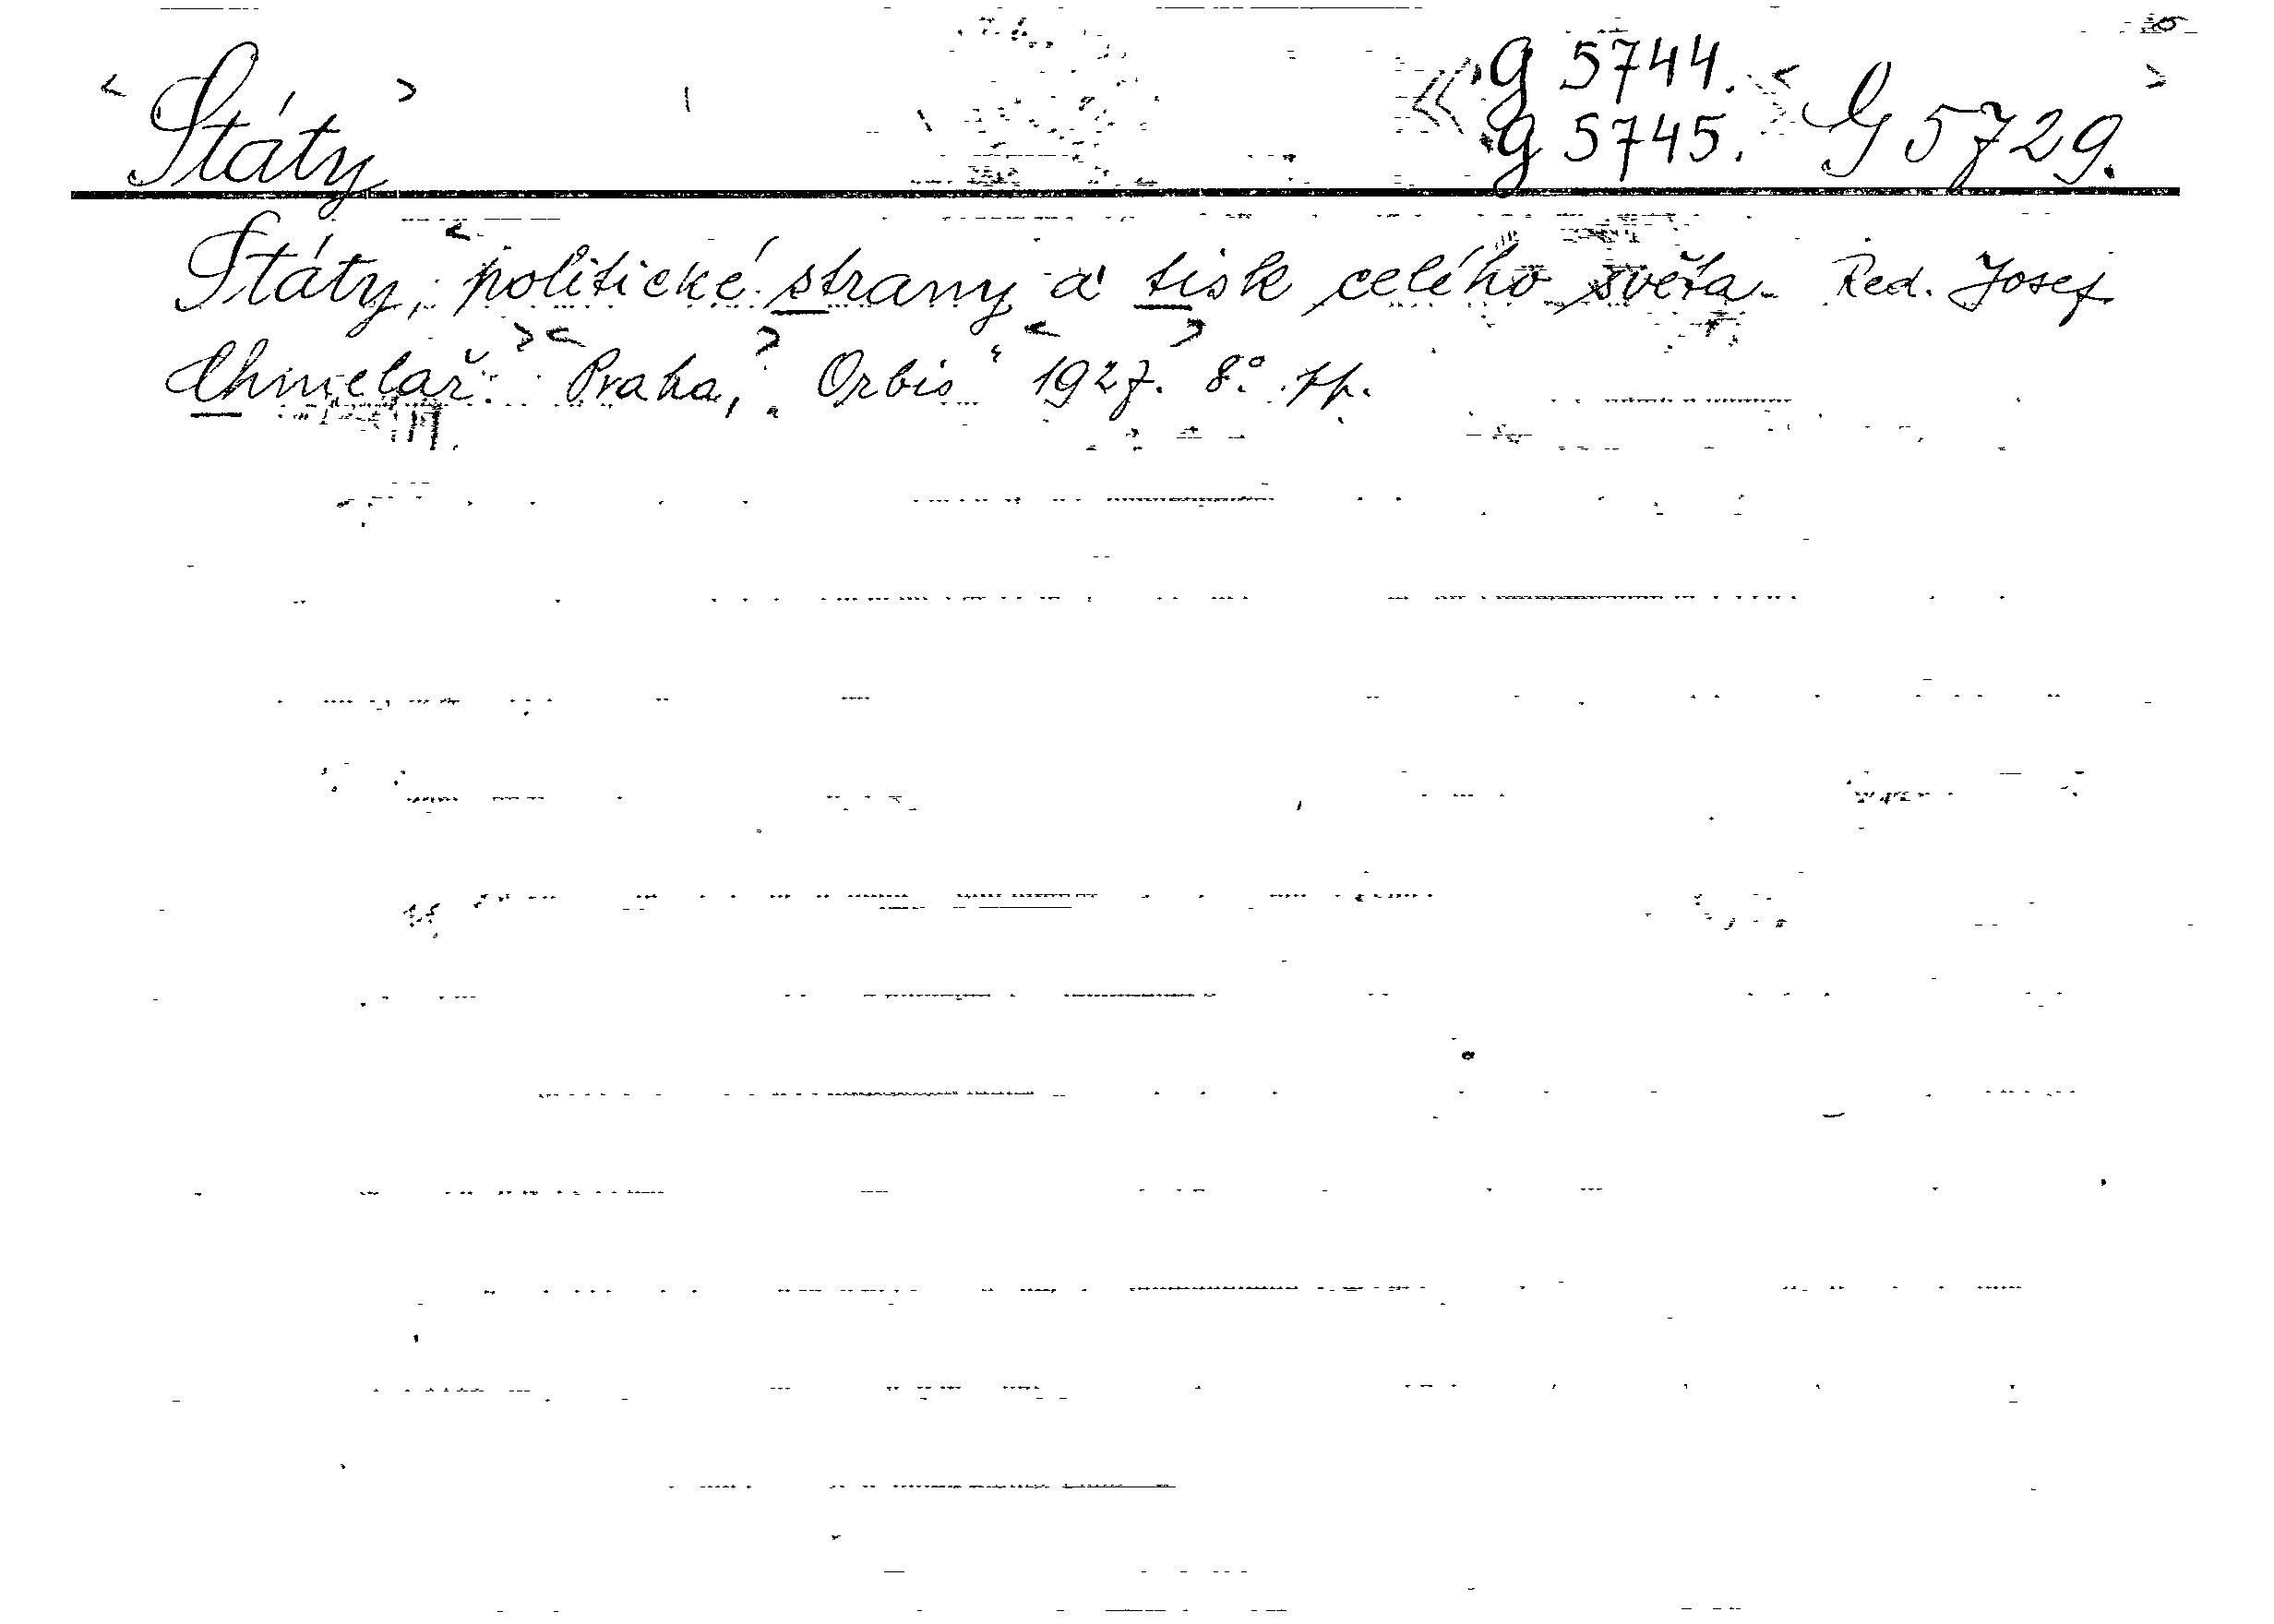 Státy
g 5744.
g 5745.
G 5729.
Státy, politické strany a tisk celého světa. Red. Josef
Chmelař. Praha, Orbis 1927. 8° pp.